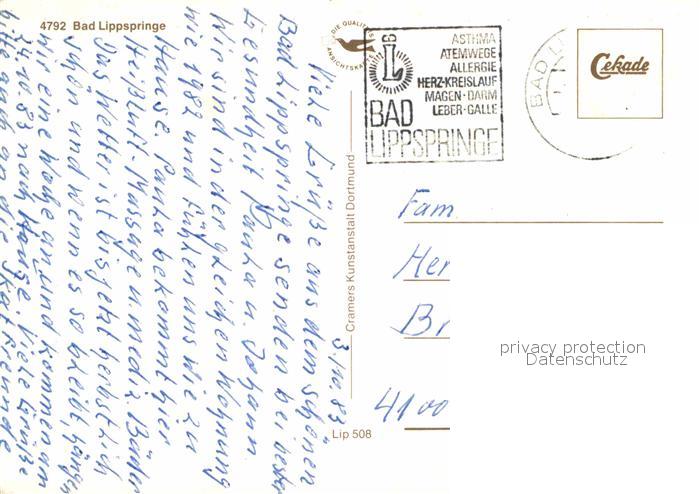 4792 Bad Lippspringe
DIE QUALITÄTS
ANSICHTSKARTE
L B
ASTHMA
ATEMWEGE
ALLERGIE
HERZ-KREISLAUF
MAGEN-DARM
LEBER-GALLE
BAD
LIPPSPRINGE
BAD LI
Cekade
3.10.83
Viele Grüße aus dem schönen
Bad Lippspringe senden bei bester
Gesundheit Paula u. Johann
Wir sind in der gleichen Wohnung
wie 1982 und fühlen uns wie zu
Hause Paula bekommt hier
Heißluft-Massagen u. mediz. Bäder
Das Wetter ist bis jetzt herbstlich
schön und wenn es so bleibt, hängen
wir eine Woche an und kommen am
24.10.83 nach Hause. Viele Grüße
bitte auch an die Skatfreunde
Cramers Kunstanstalt Dortmund
Lip 508
Fam
Her
Br
4100
privacy protection
Datenschutz